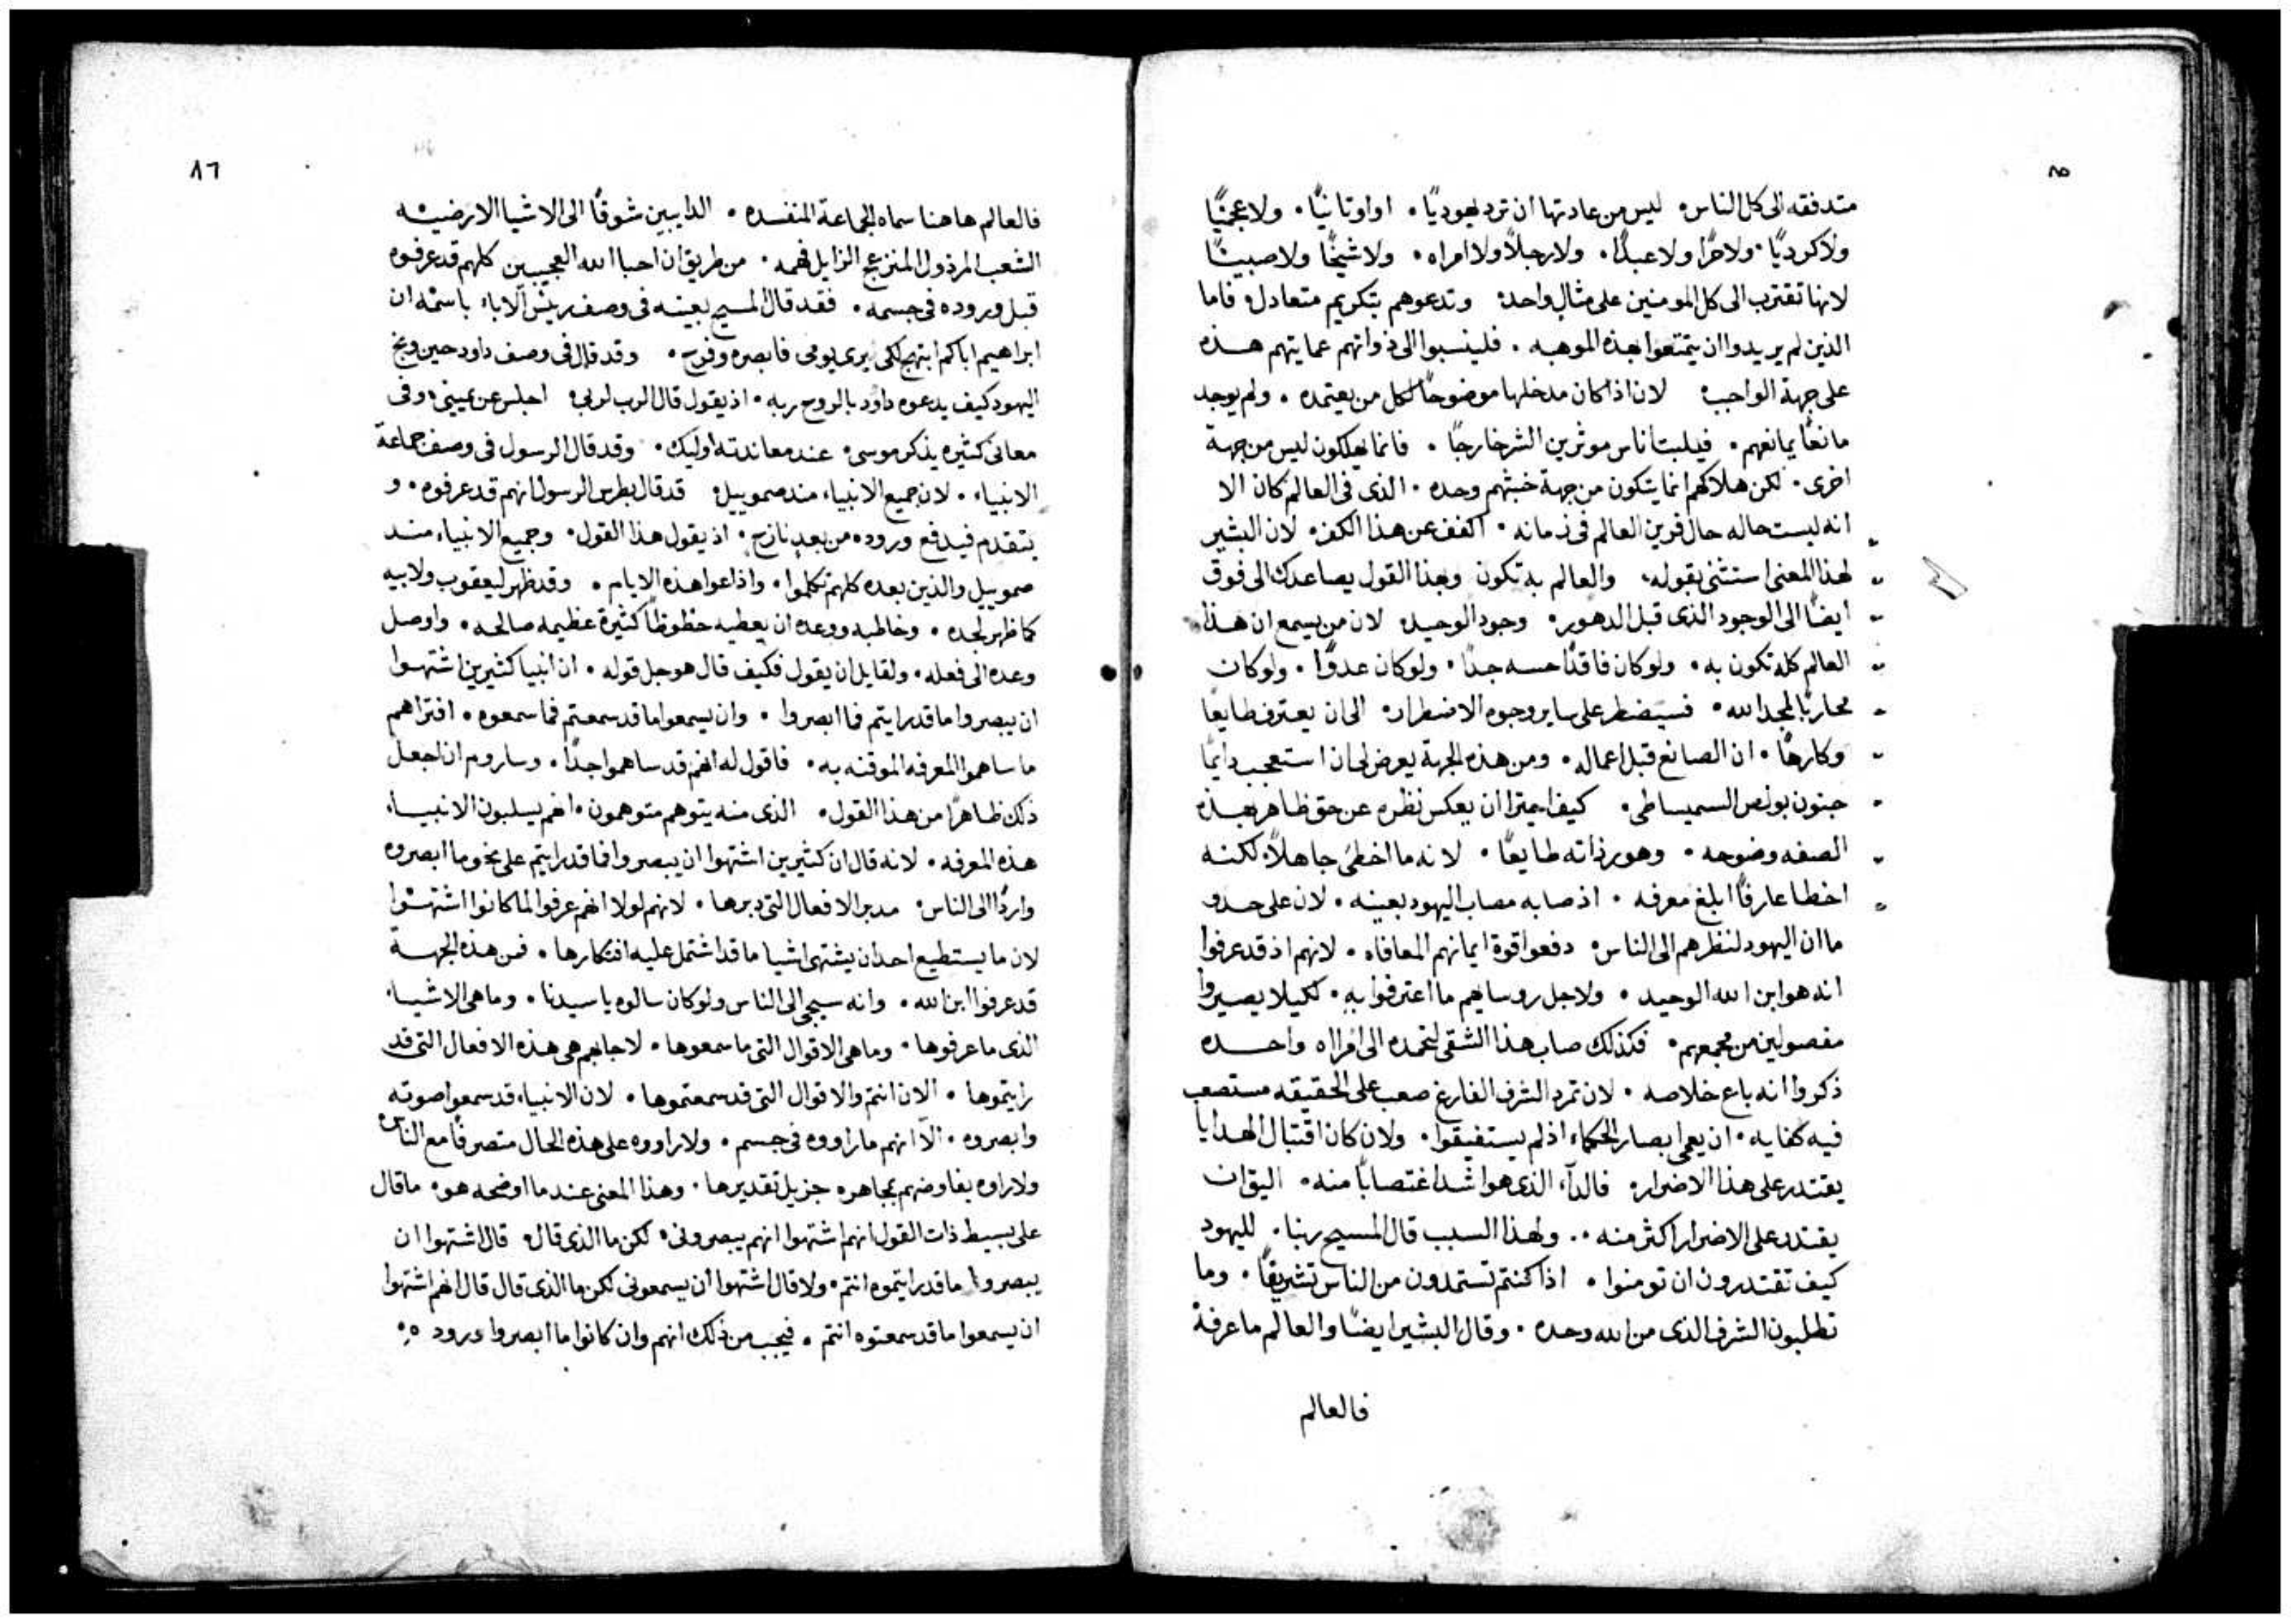 ٨٥
متدفقه الى كل الناس، ليس من عادتها ان ترد يهوديًا. او اوتانيًا. ولا عجميًا
ولا كورديًا. ولا حرًا ولا عبدًا. ولا رجلًا ولا امراه. ولا شيخًا ولا صبييًا
لانها تقترب الى كل المومنين على مثال واحد، وتدعوهم بتكريم متعادل، فاما
الذين لم يريدوا ان يتمتعوا بهذه الموهبه. فلينسبوا الى ذواتهم عمايتهم هذه
على جهة الواجب، لان اذا كان مدخلها موضوحًا لكل من يعتمده. ولم يوجد
مانعًا يمانعهم. فيلبث اناس موثرين الشر خارجًا. فانما يهلكون ليس من جهة
اخرى. لكن هلاكهم انما يتكون من جهة خبثهم وحده. الذى فى العالم كان الا
انه ليست حاله حال قرين العالم فى زمانه. اكفف عن هذا الكفر، لان البشير
لهذا المعنى استثنى بقوله، والعالم به تكون وبهذا القول يصاعدك الى فوق
ايضًا الى الوجود الذى قبل الدهور، وجود الوحيد، لان من يسمع ان هذا
العالم كله تكون به، ولو كان فاقدًا حسه جدًا. ولو كان عدوًا. ولو كان
محاربًا لمجد الله، فسيضطر على ساير وجوه الاضطرار، الى ان يعترف طايعًا
وكارهًا. ان الصانع قبل اعماله. ومن هذه الجهة يعرض لى ان استعجب دايمًا
جنون بولص السميساطى، كيف اجترا ان يعكس نظره عن حق ظاهر بهذه
الصفه وضوحه. وهور ذاته طايعًا. لانه ما اخطى جاهلًا، لكنه
اخطا عارفًا ابلغ معرفه. اذ صابه مصاب اليهود بعينه. لان على حذو
ما ان اليهود لنظرهم الى الناس، دفعوا قوة ايمانهم المعافاه. لانهم اذ قد عرفوا
انه هو ابن الله الوحيد. ولاجل روسايهم ما اعترفوا به. لكيلا يصيروا
مفصولين من مجمعهم. فكذلك صاب هذا الشقى لتحمده الى امراه واحده
ذكروا انه باع خلاصه. لان تمرد الشرف الفارغ صعب على الحقيقه مستصعب
فيه كفايه. ان يعمى ابصار الحكماء اذ لم يستفيقوا. ولان كان اقتبال الهدايا
يقتدر على هذا الاضرار، فالداء الذى هو اشد اغتصابًا منه، اليق ان
يقتدر على الاضرار اكثر منه.. ولهذا السبب قال المسيح ربنا، لليهود
كيف تقتدرون ان تومنوا. اذا كنتم تستمدون من الناس تشريفًا. وما
تطلبون الشرف الذى من الله وحده. وقال البشير ايضًا والعالم ما عرفه
فالعالم
٨٦
فالعالم هاهنا سماه الجماعة المنفسده. الدايبين شوقًا الى الاشيا الارضيه
الشعب المرذول المنزعج الزايل فهمه. من طريق ان احبا الله العجيبين كلهم قد عرفوه
قبل وروده فى جسمه. فقد قال المسيح بعينه فى وصف رييس الاباء باسمه ان
ابراهيم اباكم ابتهج لكى يرى يومى فابصره وفرح. وقد قال فى وصف داود حين وبخ
اليهود كيف يدعوه داود بالروح ربه. اذ يقول قال الرب لربى، اجلس عن يمينى، وفى
معانى كثيره يذكر موسى، عند معاندته اوليك. وقد قال الرسول فى وصف جماعة
الانبياء. لان جميع الانبياء منذ صموييل، قد قال بطرس الرسول انهم قد عرفوه. و
يتقدم فيدفع وروده من بعد نازح. اذ يقول هذا القول، وجميع الانبياء منذ
صموييل والذين بعده كلهم تكلموا. واذاعوا هذه الايام. وقد ظهر ليعقوب ولابيه
كما ظهر لجده. وخاطبه ووعده ان يعطيه حظوظًا كثيرة عظيمه صالحه. واوصل
وعده الى فعله. ولقايل ان يقول فكيف قال هو جل قوله. ان انبيا كثيرين اشتهوا
ان يبصروا ما قد رايتم فما ابصروا. وان يسمعوا ما قد سمعتم فما سمعوه. افتراهم
ما ساهموا المعرفه الموقنه به. فاقول له انهم قد ساهموا جدًا. وساروم ان اجعل
ذلك ظاهرًا من هذا القول، الذى منه يتوهم متوهمون، انهم يسلبون الانبياء
هذه المعرفه. لانه قال ان كثيرين اشتهوا ان يبصروا ما قد رايتم على نحو ما ابصروه
واردًا الى الناس، مدبر الافعال التى دبرها. لانهم لولا انهم عرفوا لما كانوا اشتهوا
لان ما يستطيع احد ان يشتهى اشيا ما قد اشتمل عليه افتكارها. فمن هذه الجهة
قد عرفوا ابن الله. وانه سيجى الى الناس ولو كان سالوه يا سيدنا. وما هى الاشياء
الذى ما عرفوها. وما هى الاقوال التى ما سمعوها. لاجابهم هى هذه الافعال التى قد
رايتموها. الان انتم والاقوال التى قد سمعتموها. لان الانبياء قد سمعوا صوته
وابصروه. الا انهم ما راووه فى جسم. ولا راووه على هذه الحال متصرفًا مع الناس
ولا راوه يفاوضهم بمجاهره جزيل تقديرها. وهذا المعنى عندما اوضحه هو، ما قال
على بسيط ذات القول انهم اشتهوا انهم يبصرونى، لكن ما الذى قال، قال اشتهوا ان
يبصروا ما قد رايتموه انتم، ولا قال اشتهوا ان يسمعونى لكن ما الذى قال قال انهم اشتهوا
ان يسمعوا ما قد سمعتوه انتم. فيجب من ذلك انهم وان كانوا ما ابصروا وروده